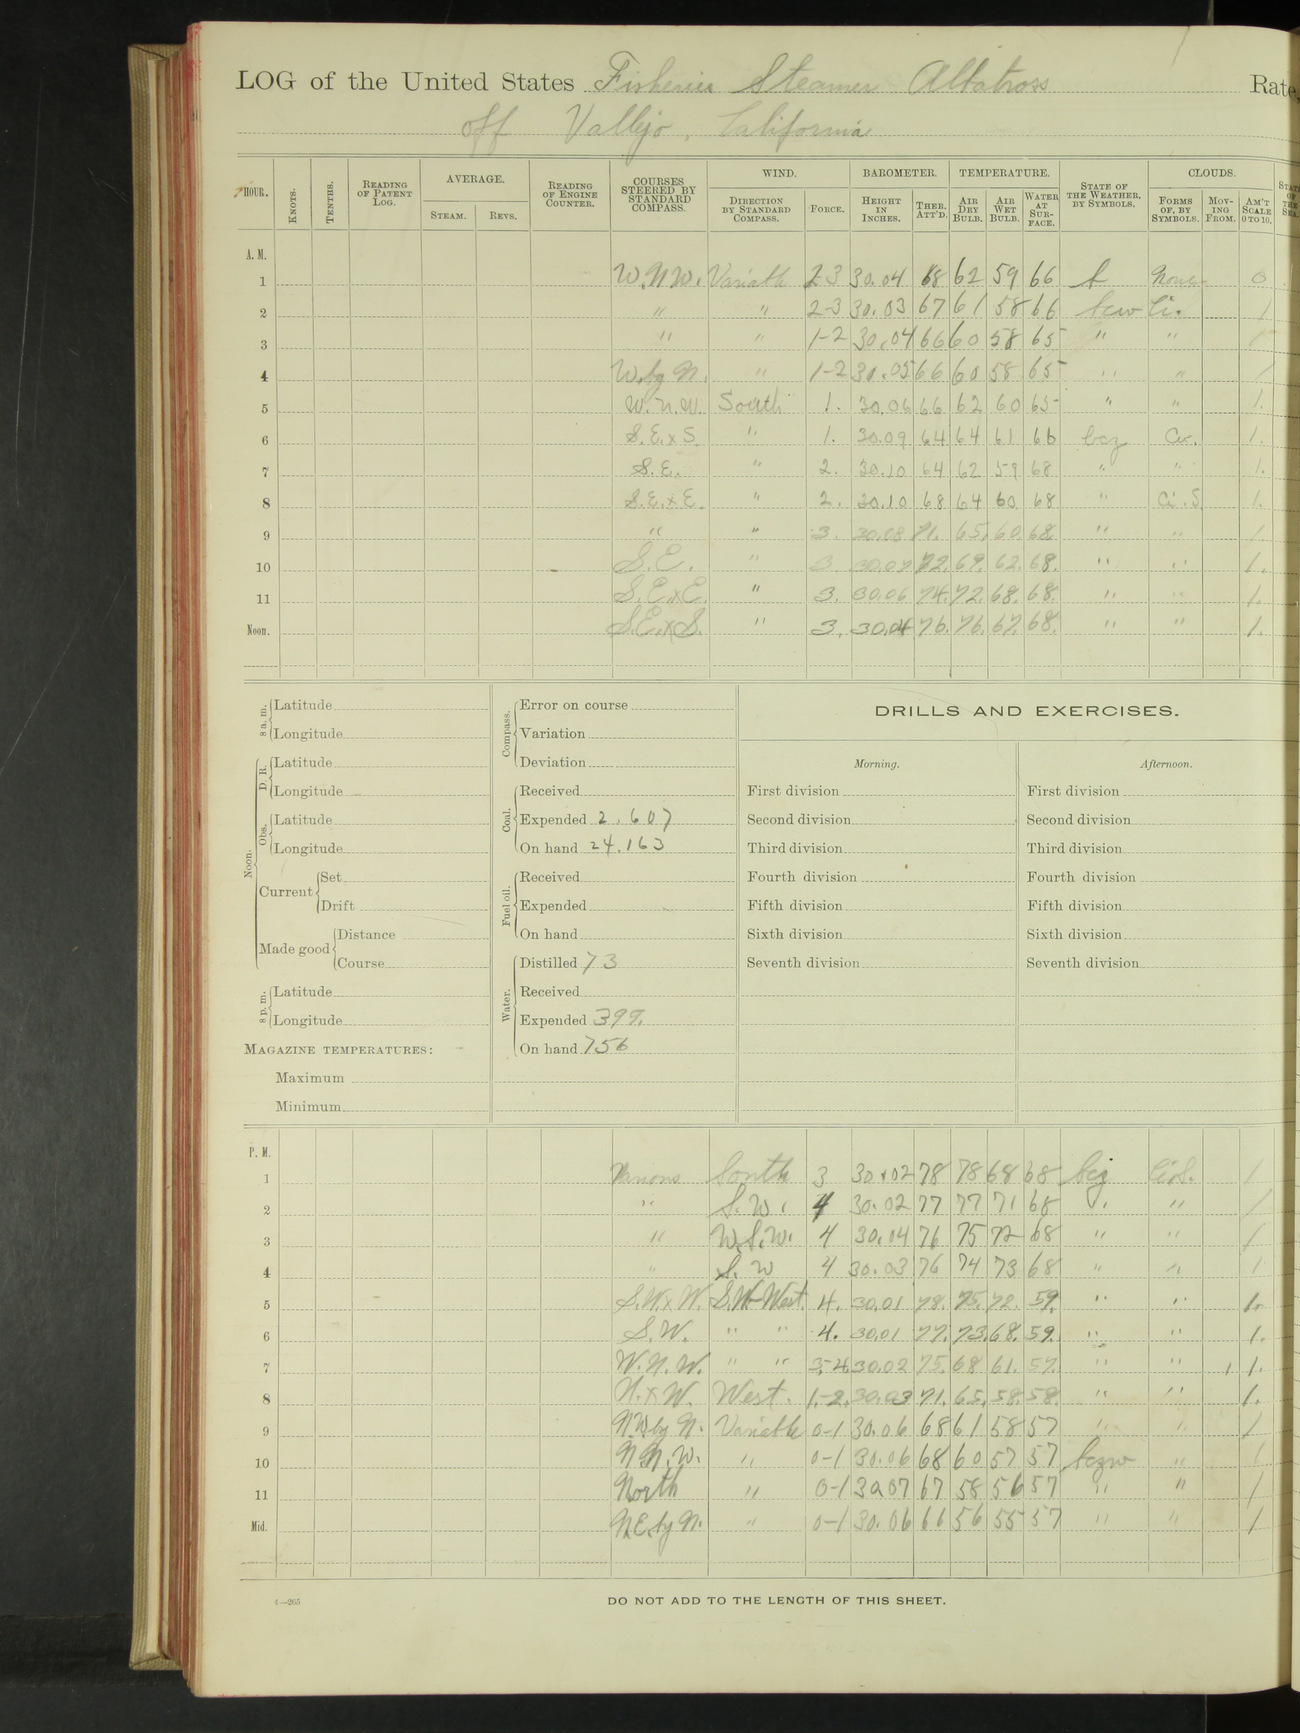 LOG of the United States Fisheries Steamer Albatross Rate,
off Vallejo, California
HOUR. KNOTS. TENTHS. READING OF PATENT LOG. AVERAGE. STEAM. REVS. READING OF ENGINE COUNTER. COURSES STEERED BY STANDARD COMPASS. WIND. DIRECTION BY STANDARD COMPASS. FORCE. BAROMETER. HEIGHT IN INCHES. THER. ATT'D. TEMPERATURE. AIR DRY BULB. AIR WET BULB. WATER AT SURFACE. STATE OF THE WEATHER, BY SYMBOLS. CLOUDS. FORMS OF, BY SYMBOLS. MOVING FROM. AM'T SCALE 0 TO 10. STATE OF THE SEA.
A. M.
1 W.N.W. Variable 2-3 30.04 68 62 59 66 b None 0
2 " " 2-3 30.03 67 61 58 66 bcw Ci. 1
3 " " 1-2 30.04 66 60 58 65 " " 1
4 W. by N. " 1-2 30.05 66 60 58 65 " " 1
5 W.N.W. South 1. 30.06 66 62 60 65 " " 1.
6 S.E.x S. " 1. 30.09 64 64 61 66 bcz Cu. 1.
7 S.E. " 2. 30.10 64 62 59 68 " " 1.
8 S.E.x E. " 2. 30.10 68 64 60 68 " Ci.S 1.
9 " " 3. 30.08 71. 65. 60. 68. " " 1.
10 S.E. " 3 30.07 72. 69. 62. 68. " " 1.
11 S.E.x E. " 3. 30.06 74. 72. 68. 68. " " 1.
Noon. S.E.x S. " 3. 30.04 76. 76. 67. 68. " " 1.
8 a. m. Latitude
Longitude
Noon. D. R. Latitude
Longitude
Obs. Latitude
Longitude
Current Set
Drift
Made good Distance
Course
8 p. m. Latitude
Longitude
MAGAZINE TEMPERATURES:
Maximum
Minimum
Compass. Error on course
Variation
Deviation
Coal. Received
Expended 2,607
On hand 24.163
Fuel oil. Received
Expended
On hand
Water. Distilled 73
Received
Expended 399.
On hand 756
DRILLS AND EXERCISES.
Morning.
First division
Second division
Third division
Fourth division
Fifth division
Sixth division
Seventh division
Afternoon.
First division
Second division
Third division
Fourth division
Fifth division
Sixth division
Seventh division
P. M.
1 Various South 3 30.02 78 78 68 68 bcz Ci.S. 1
2 " S.W. 4 30.02 77 77 71 68 " " 1
3 " W.S.W. 4 30.04 76 75 72 68 " " 1
4 " S.W 4 30.03 76 74 73 68 " " 1
5 S.W.x W. S.W-West. 4. 30.01 78. 75. 72. 59. " " 1.
6 S.W. " " 4. 30.01 77. 73. 68. 59. " " 1.
7 W.N.W. " " 3-4. 30.02 75. 68 61. 57. " " 1.
8 N.x W. West. 1-2. 30.03 71. 65. 58. 58. " " 1.
9 N.W. by N. Variable 0-1 30.06 68 61 58 57 " " 1
10 N.N.W. " 0-1 30.06 68 60 57 57 bczw " 1
11 North " 0-1 30.07 67 58 56 57 " " 1
Mid. N.E. by N. " 0-1 30.06 66 56 55 57 " " 1
4—265
DO NOT ADD TO THE LENGTH OF THIS SHEET.